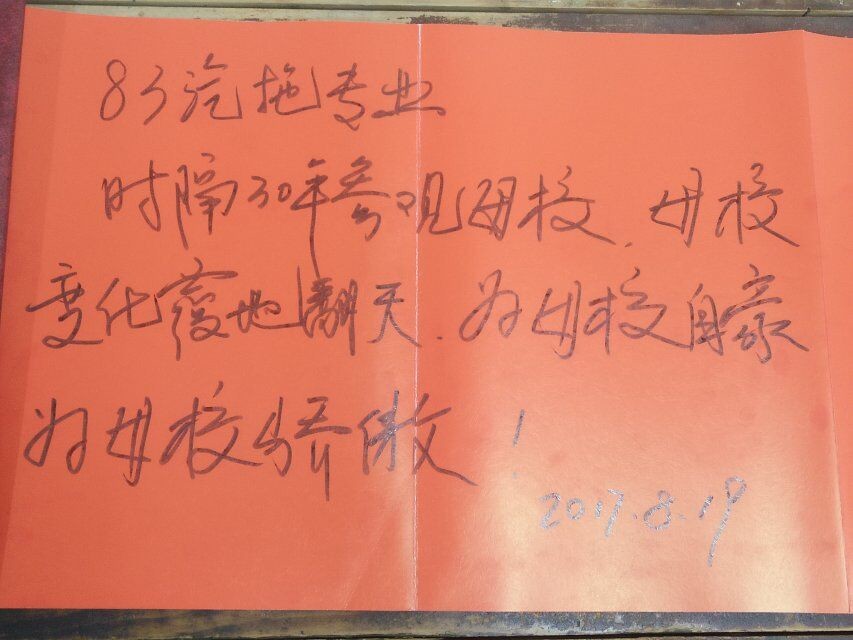 83汽拖专业
时隔30年参观母校.母校
变化覆地翻天.为母校自豪
为母校骄傲！
2017.8.19